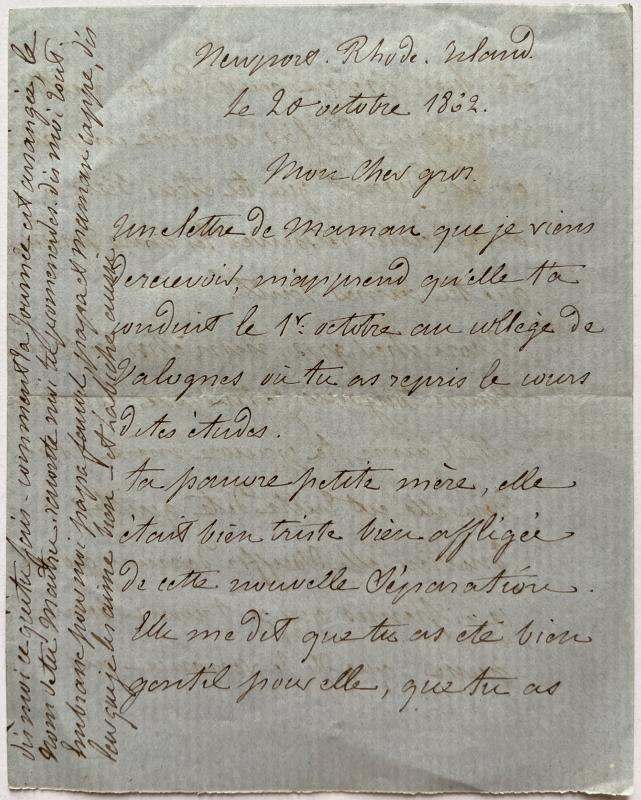 Newport. Rhode. Island.
le 20 octobre 1862.
Mon cher gros.
une lettre de Maman que je viens
de recevoir, m'apprend qu'elle t'a
conduit le 1r. octobre au collège de
Valognes où tu as repris le cours
de tes études.
ta pauvre petite mère, elle
était bien triste bien affligée
de cette nouvelle Séparation.
Elle me dit que tu as été bien
gentil pour elle, que tu as
dis moi ce que tu fais - comment ta journée est arrangée, le
nom de tu Maître, raconte moi tes promenades. dis moi tout.
Embrasse pour moi papa papa et maman cappe, dis
leur que je les aime bien - et aussi